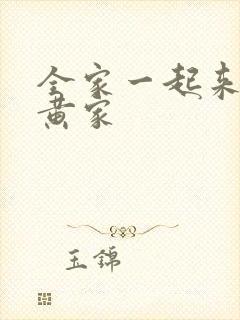 全家一起来
黄家
玉錦